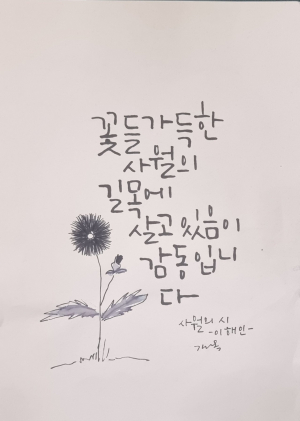 꽃들가득한
사월의
길목에
살고 있음이
감동입니
다
사월의 시
-이해인-